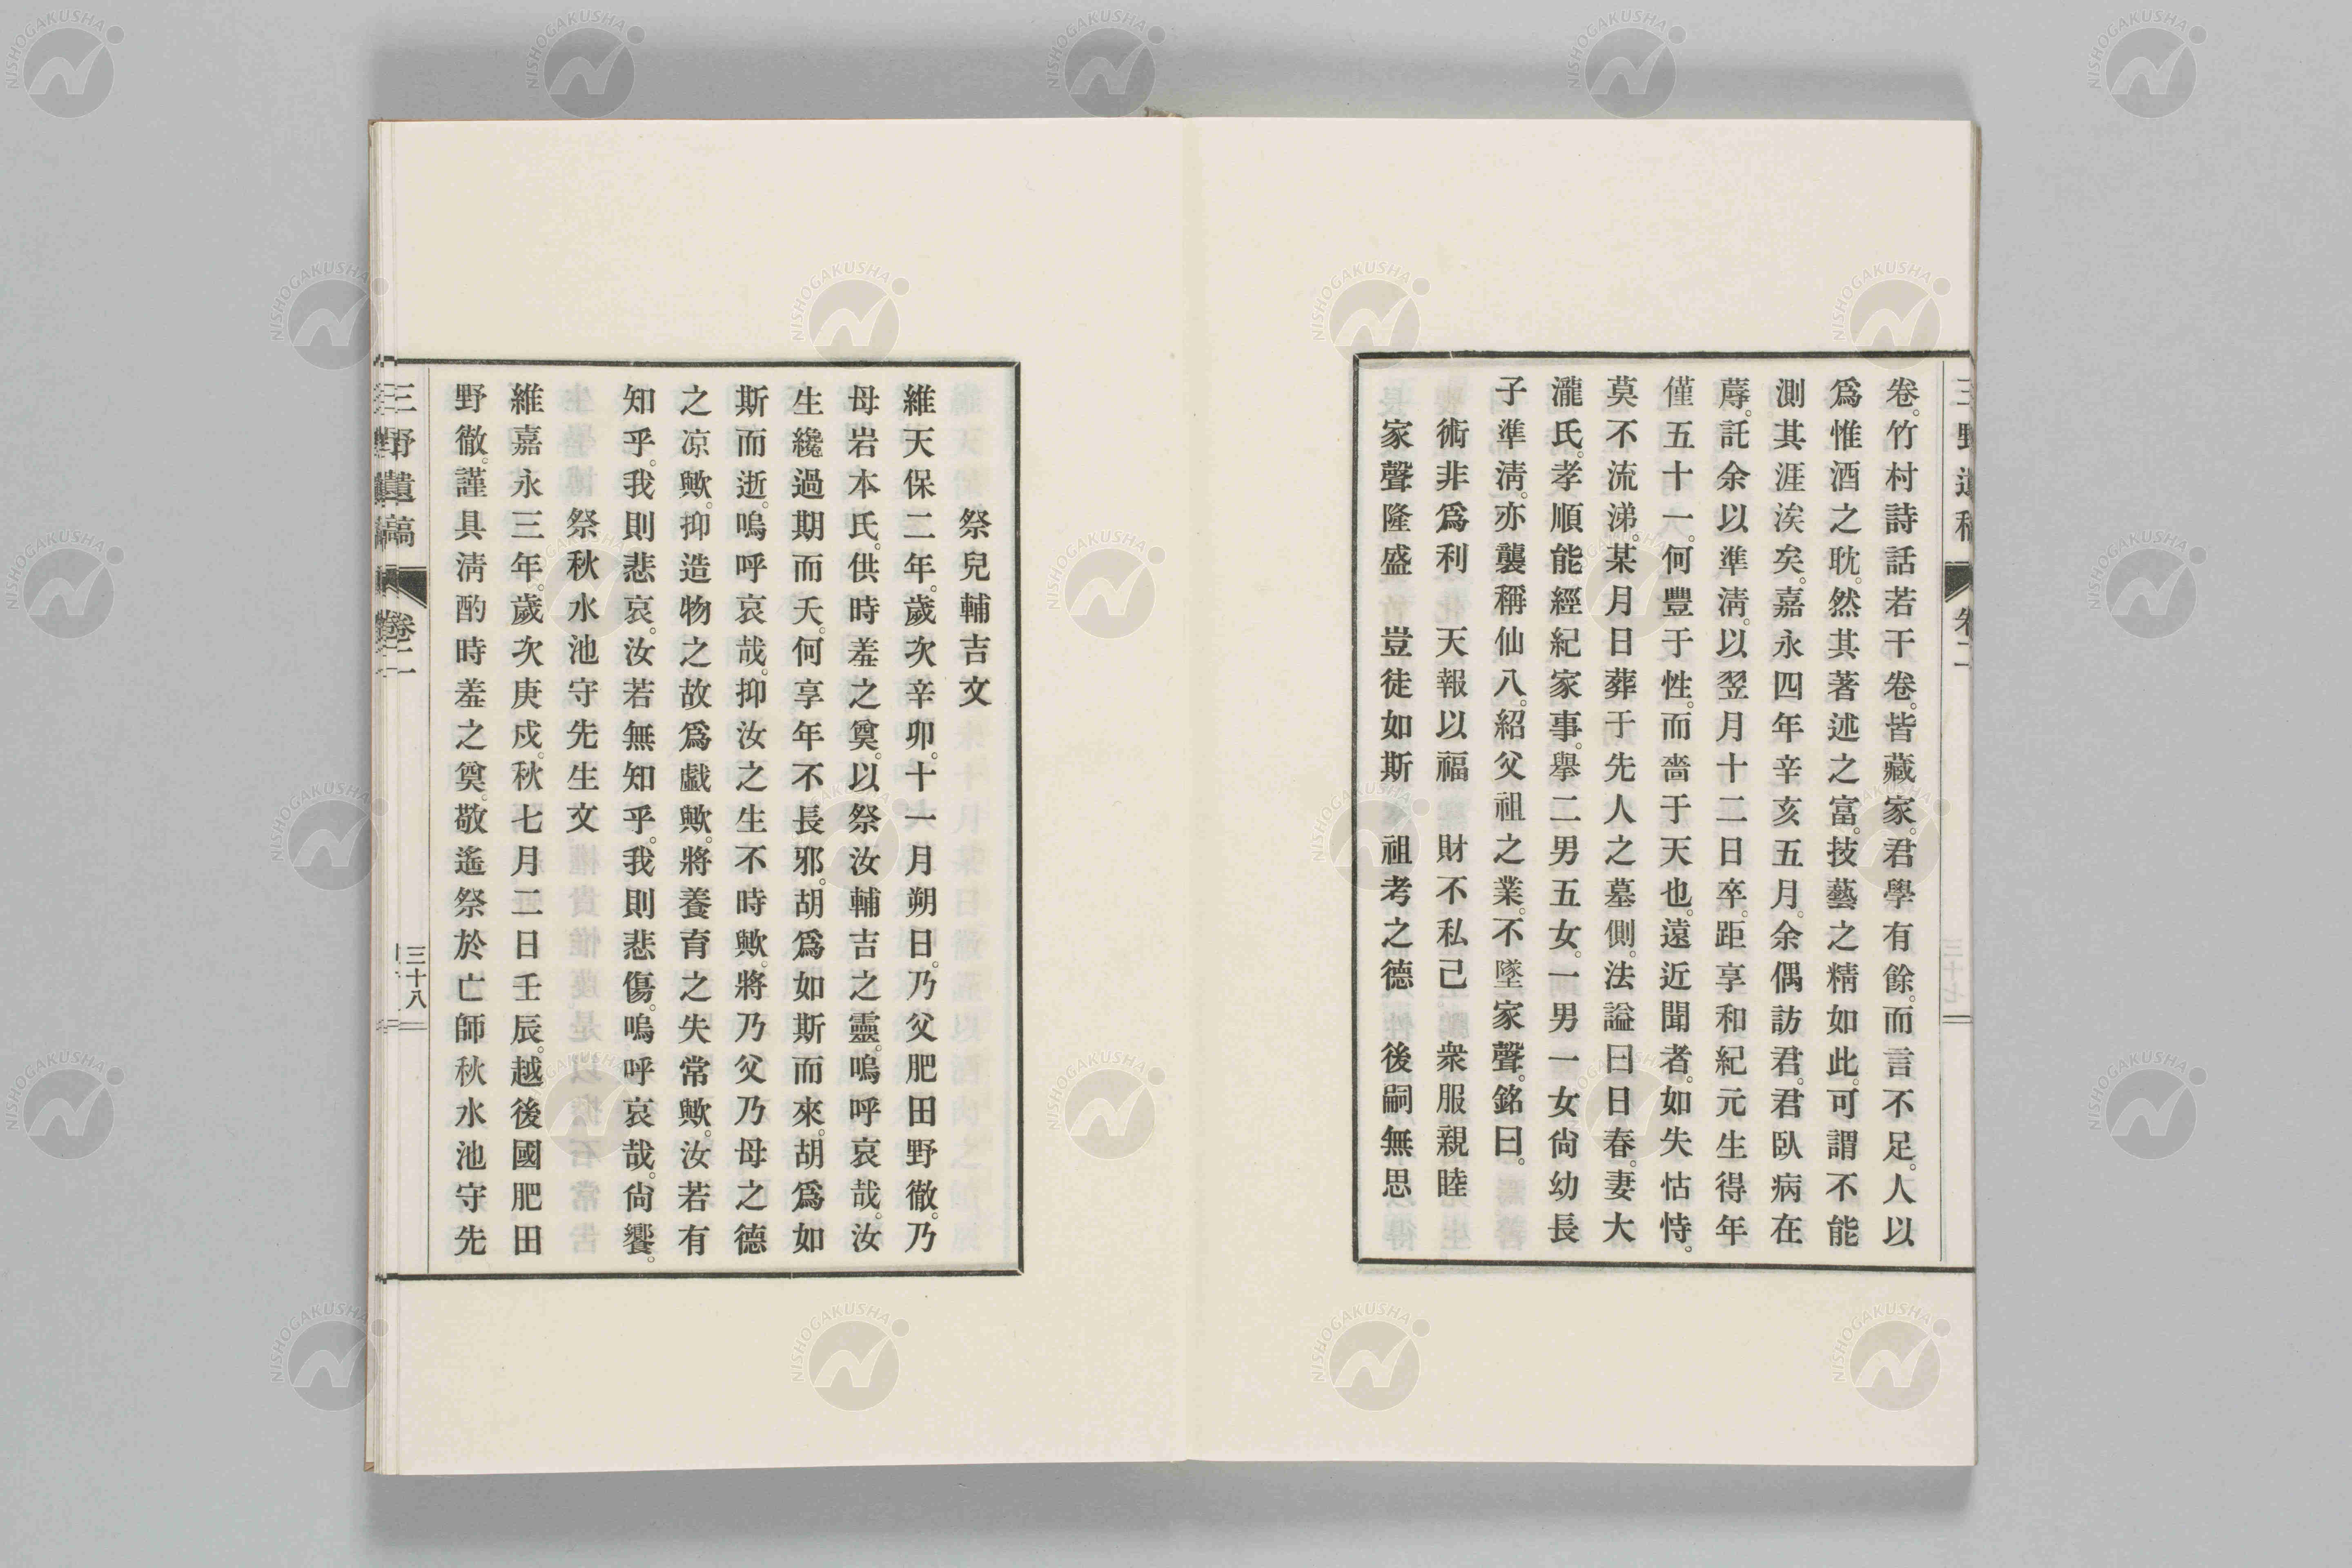 卷。竹村詩話若干卷。皆藏家。君學有餘。而言不足。人以
爲惟酒之耽。然其著述之富。技藝之精如此。可謂不能
測其涯涘矣。嘉永四年辛亥五月。余偶訪君。君臥病在
蓐。託余以準淸。以翌月十二日卒。距享和紀元生得年
僅五十一。何豐于性。而嗇于天也。遠近聞者。如失怙恃。
莫不流涕。某月日葬于先人之墓側。法謚曰日春。妻大
瀧氏。孝順能經紀家事。擧二男五女。一男一女尙幼長
子準淸。亦襲稱仙八。紹父祖之業。不墜家聲。銘曰。
術非爲利 天報以福 財不私己 衆服親睦
家聲隆盛 豈徒如斯 祖考之德 後嗣無思
三野遺稿 卷二
祭兒輔吉文
維天保二年。歲次辛卯。十一月朔日。乃父肥田野徹。乃
母岩本氏。供時羞之奠。以祭汝輔吉之靈。嗚呼哀哉。汝
生纔過期而夭。何享年不長邪。胡爲如斯而來。胡爲如
斯而逝。嗚呼哀哉。抑汝之生不時歟。將乃父乃母之德
之凉歟。抑造物之故爲戲歟。將養育之失常歟。汝若有
知乎。我則悲哀。汝若無知乎。我則悲傷。嗚呼哀哉。尙饗。
祭秋水池守先生文
維嘉永三年。歲次庚戍。秋七月二日壬辰。越後國肥田
野徹。謹具淸酌時羞之奠。敬遙祭於亡師秋水池守先
三野遺稿 卷二 三十八
NISHOGAKUSHA